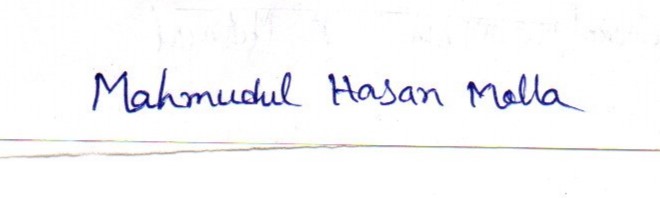 Mahmudul Hasan Molla